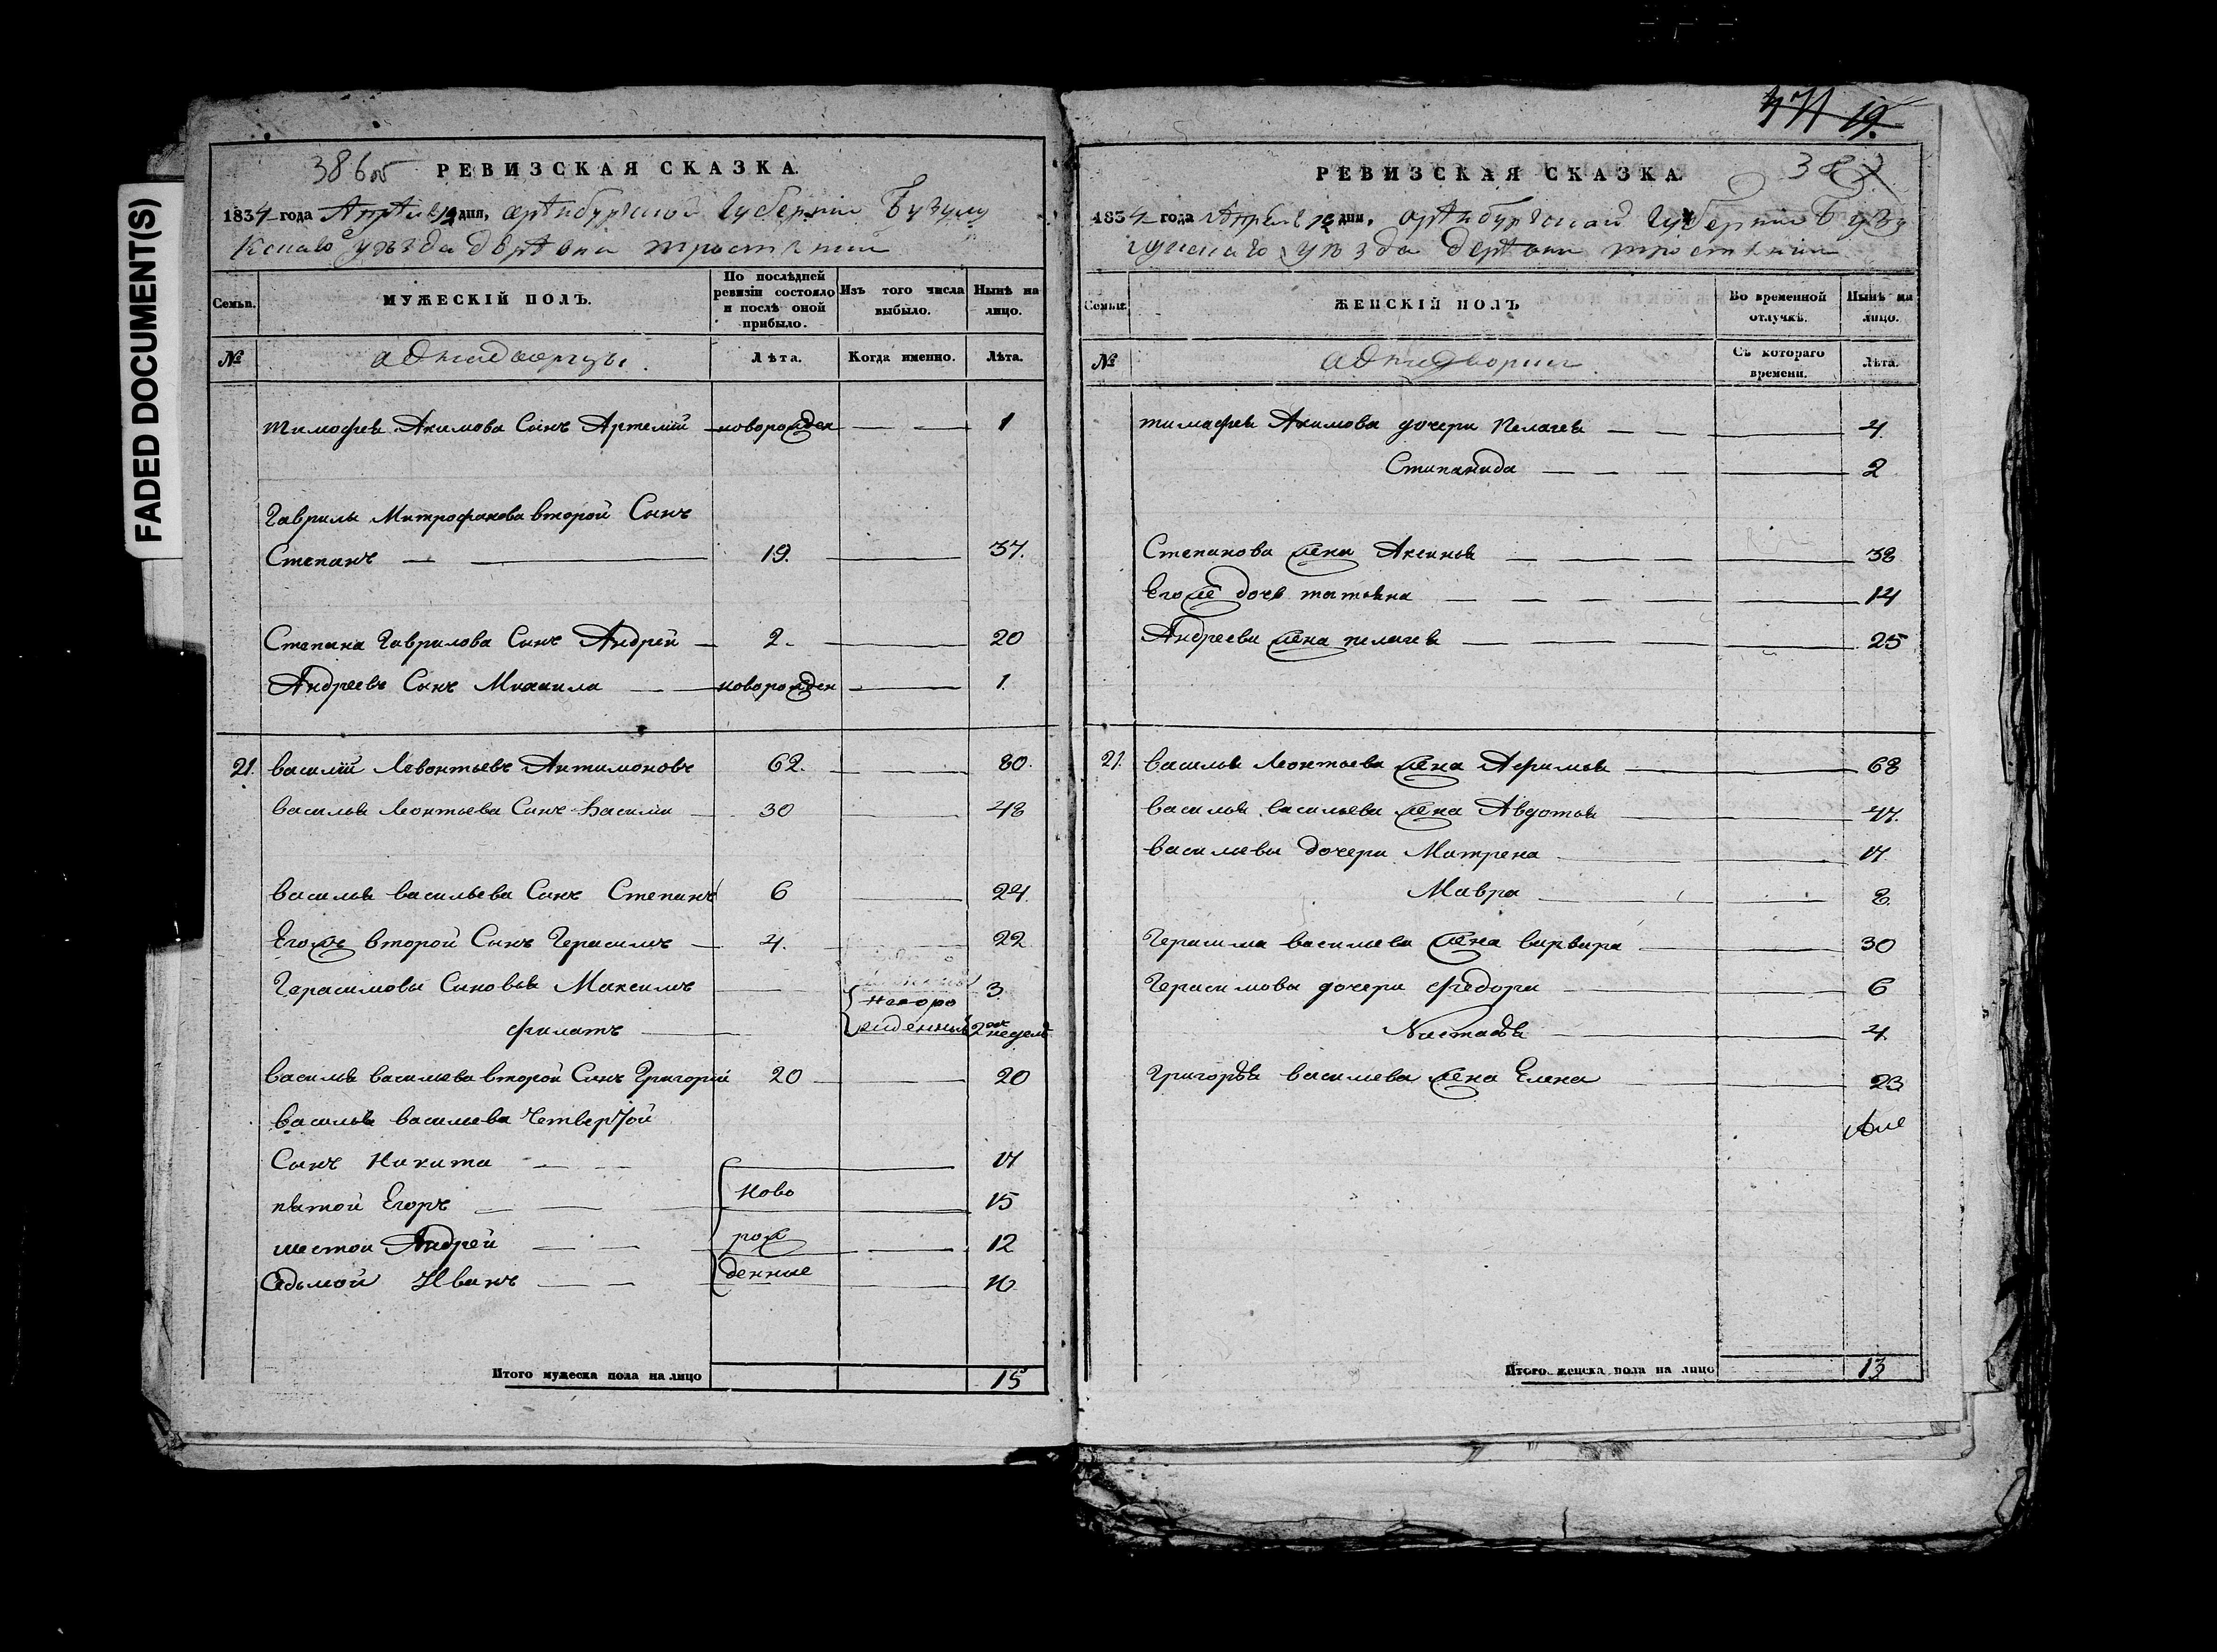 FADED DOCUMENT(S)
386об РЕВИЗСКАЯ СКАЗКА.
1834 года Апреля 12 дня, аренбургской губернии Бузулу
кскаго уезда деревни тростянки
Семьи. МУЖЕСКІЙ ПОЛЪ. По послѣдней ревизіи состояло и послѣ оной прибыло. Изъ того числа выбыло. Нынѣ на лицо.
№ аднадворцы. Лѣта. Когда именно. Лѣта.
тимофея Акимова Сынъ Артемій новорожден 1
Гаврилы Митрофанова второй Сынъ
Степанъ 19. 37.
Степана Гаврилова Сынъ Андрей 2. 20
Андреевъ Сынъ Михаила новорожден 1.
21. василій Левонтьевъ Антимоновъ 62. 80.
василья Леонтьева Сынъ Василий 30 48
василья васильева Сынъ Степанъ 6 24.
Егожъ второй Сынъ Герасимъ 4. 22
Герасимовы Сыновья Максимъ новоро 3.
филатъ жденный 2 недель
василья васильева второй Сынъ Григорий 20 20
василья васильева четвертой
Сынъ Никита 17
пятой Егоръ ново 15
шестой Андрей рож 12
Седьмой Иванъ денные 10
Итого мужеска пола на лицо 15
471 19.
РЕВИЗСКАЯ СКАЗКА 387
1834 года Апреля 12 дня, оренбургской губернии Бузу
лускаго уезда деревни тростянки
Семьи. ЖЕНСКІЙ ПОЛЪ Во временной отлучкѣ. Нынѣ на лицо.
№ аднадворки. Съ котораго времени. Лѣта.
тимафея Акимова дочери Пелагея 4.
Стипанида 2
Степанова жена Аксинья 38
Егоже дочь татьяна 14
Андреева жена пелагея 25
21. василья Леонтьева жена Афимья 68
василья васильева жена Авдотья 47.
васильевы дочери Матрена 17
Мавра 8.
Герасима васильева жена варвара 30
Герасимовы дочери федора 6
Настасья 4
Григорья васильева жена Елена 23
Итого женска пола на лицо 13